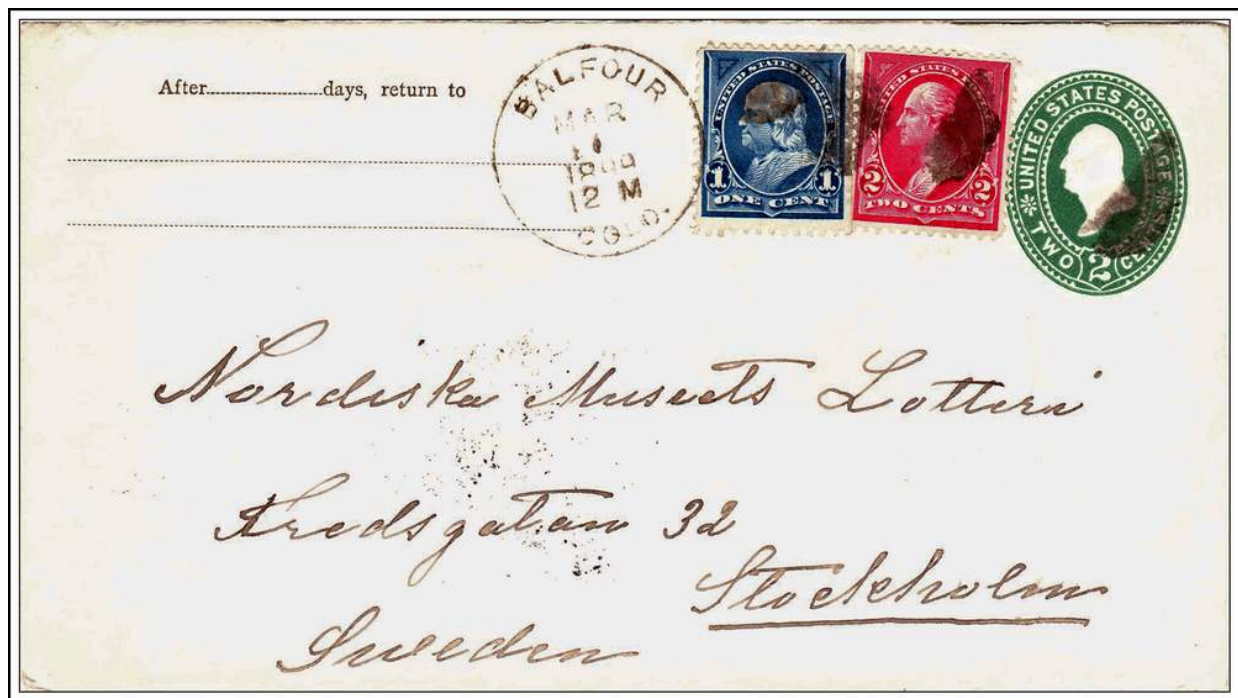 After..............days, return to
BALFOUR
MAR
12 M
COLO.
UNITED STATES POSTAGE
1 1
ONE CENT
UNITED STATES POSTAGE
2 2
TWO CENTS
UNITED STATES POSTAGE
TWO 2 CENTS
Nordiska Museets Lotteri
Fredsgatan 32
Stockholm
Sweden